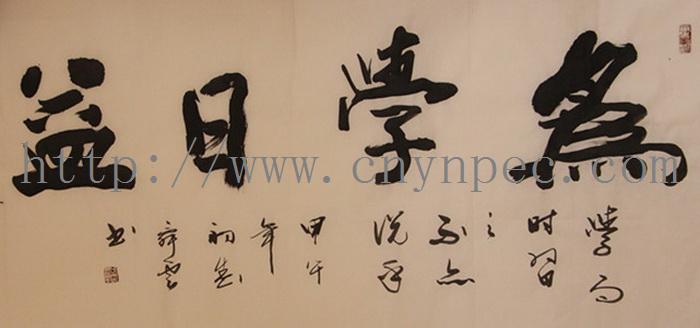 為學日益
學而
时習
之
不亦
说乎
甲午
年
初春
书
http://www.cnynpec.com